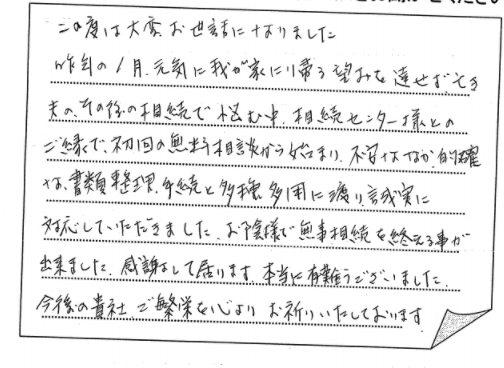 この度は大変お世話になりました
昨年の1月、元気に我が家に帰る望みを達せず亡き
夫の、その後の相続で悩む中、相続センター様との
ご縁で、初回の無料相談から始まり、不安ななか、的確
な、書類整理、手続と多種多用に渡り誠実に
対応していただきました。お陰様で無事相続を終える事が
出来ました。感謝して居ります。本当に有難うございました。
今後の貴社、ご繁栄を心よりお祈りいたしております。